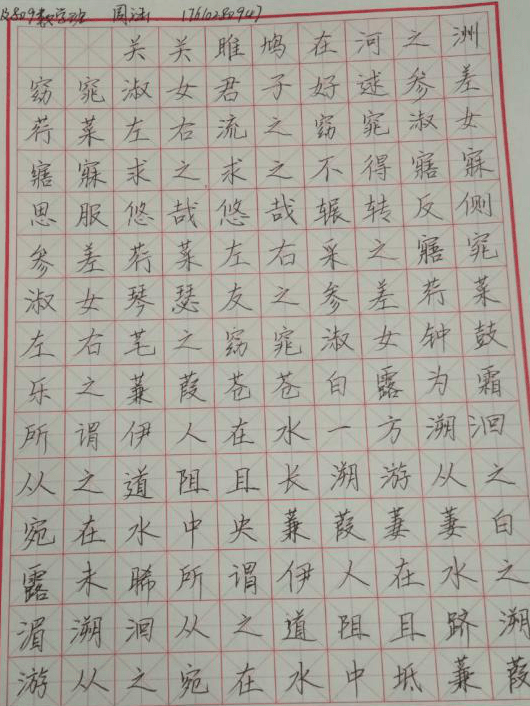 数学班
关关雎鸠在河之洲
窈窕淑女君子好逑参差
荇菜左右流之窈窕淑女
寤寐求之求之不得寤寐
思服悠哉悠哉辗转反侧
参差荇菜左右采之寤窕
淑女琴瑟友之参差荇菜
左右芼之窈窕淑女钟鼓
乐之蒹葭苍苍白露为霜
所谓伊人在水一方溯洄
从之道阻且长溯游从之
宛在水中央蒹葭萋萋白
露未晞所谓伊人在水之
湄溯洄从之道阻且跻溯
游从之宛在水中坻蒹葭